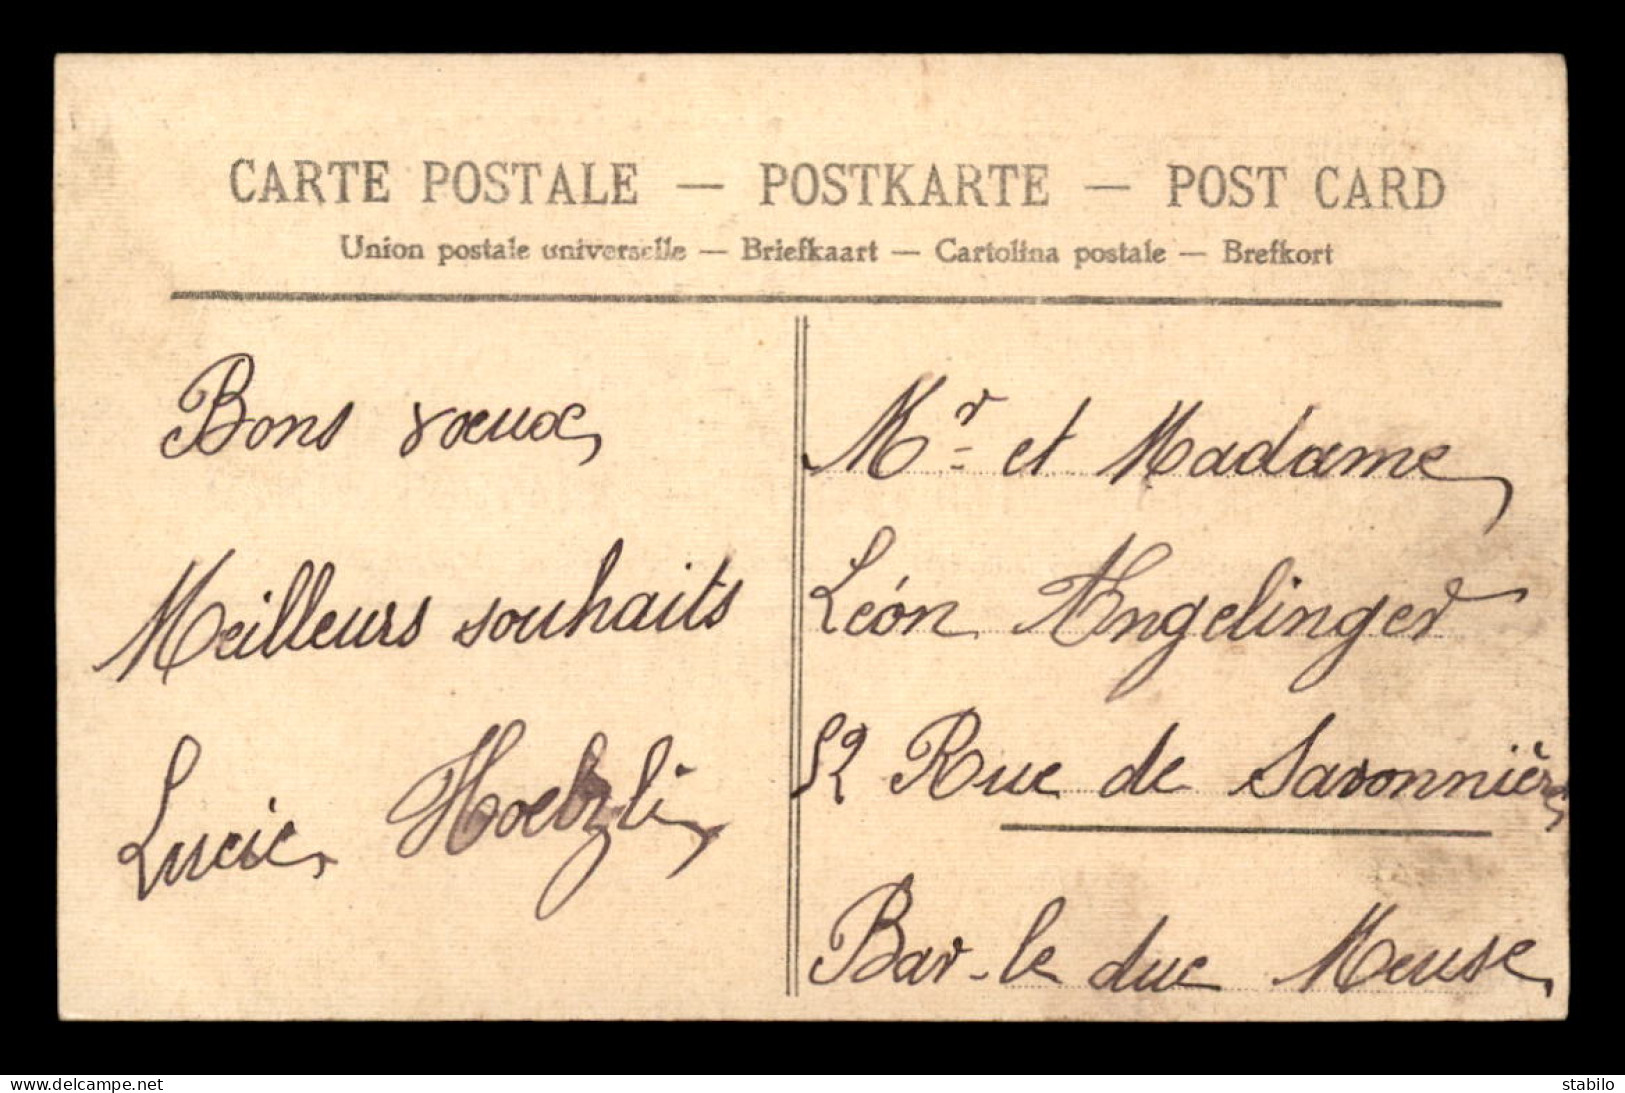 CARTE POSTALE — POSTKARTE — POST CARD
Union postale universelle — Briefkaart — Cartolina postale — Brefkort
Bons vœux,
Meilleurs souhaits
Lucie Hoelzli
Mr et Madame
Léon Angelinger
52 Rue de Savonnières
Bar-le duc Meuse
www.delcampe.net
stabilo